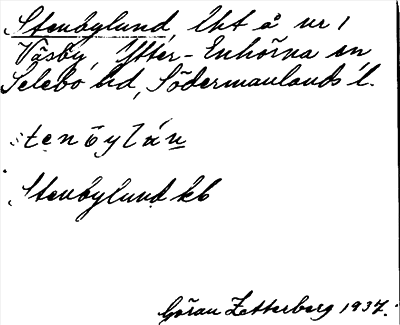 Stenbylund, lht å nr 1
Väsby, Ytter-Enhörna sn
Selebo hd, Södermanlands l.
stenbylún
Stenbylund kb
Göran Zetterberg 1937.